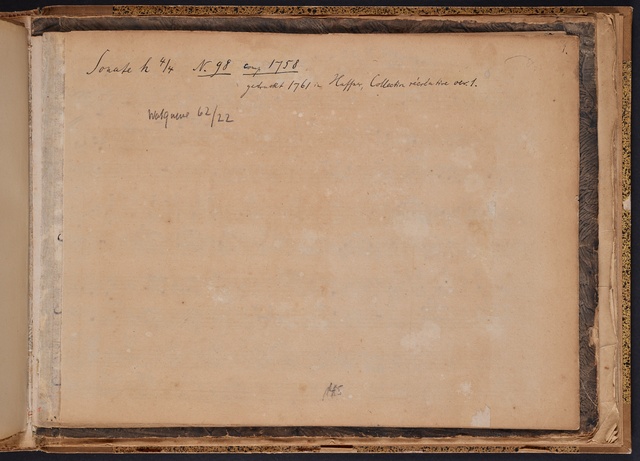 1.
Sonate h 4/4 N. 98 comp 1758
gedruckt 1761 in Haffner Collection récréative oev. 1.
Wotquenne 62/22